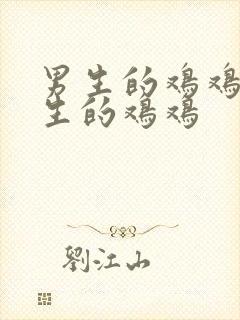 男生的鸡鸡
生的鸡鸡
劉江山